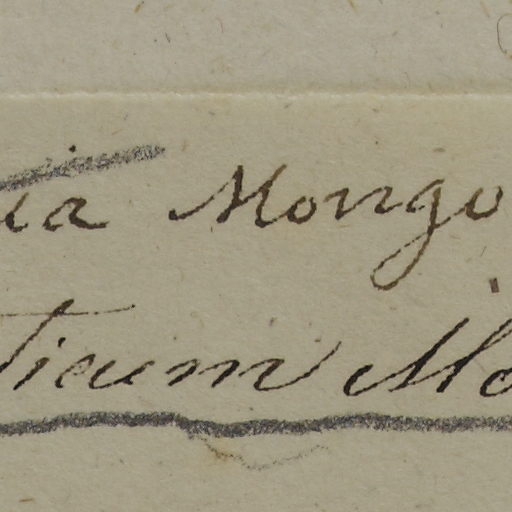 ia Mongo
ticum Mo